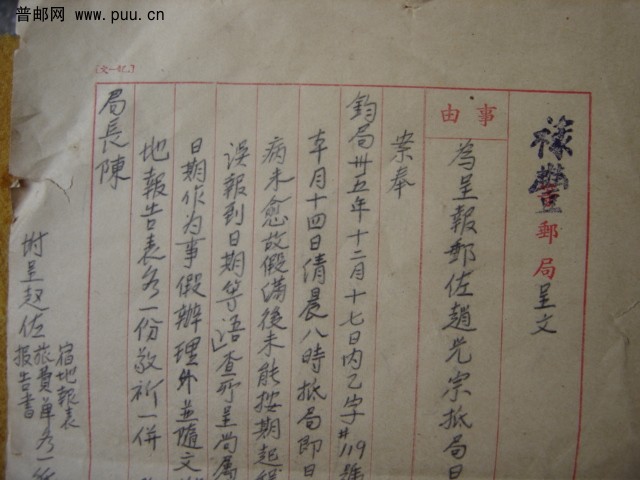 普邮网 www.puu.cn
祿豐郵局呈文
事由
為呈報郵佐趙光宗抵局日
案奉
鈞局卅五年十二月十七日內乙字#119號
本月十四日清晨八時抵局即日
病未愈故假滿後未能按期起程
誤報到日期等語查所呈尚屬
日期作为事假辦理外並隨文
地報告表各一份敬祈一併
局長陳
附呈趙佐
宿地報表
旅費單各一
报告書